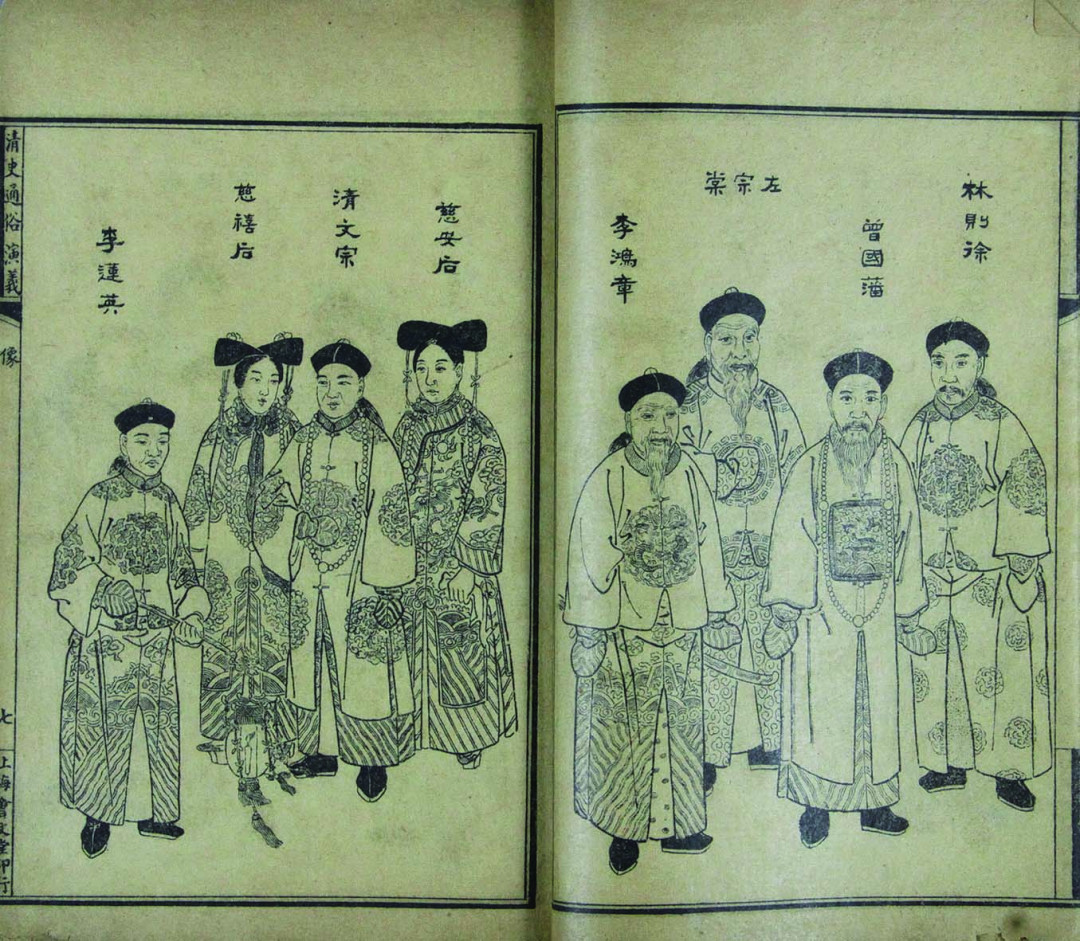 林則徐
曾國藩
左宗棠
李鴻章
慈安后
清文宗
慈禧后
李蓮英
清史通俗演義
像
七
上海會文堂印行